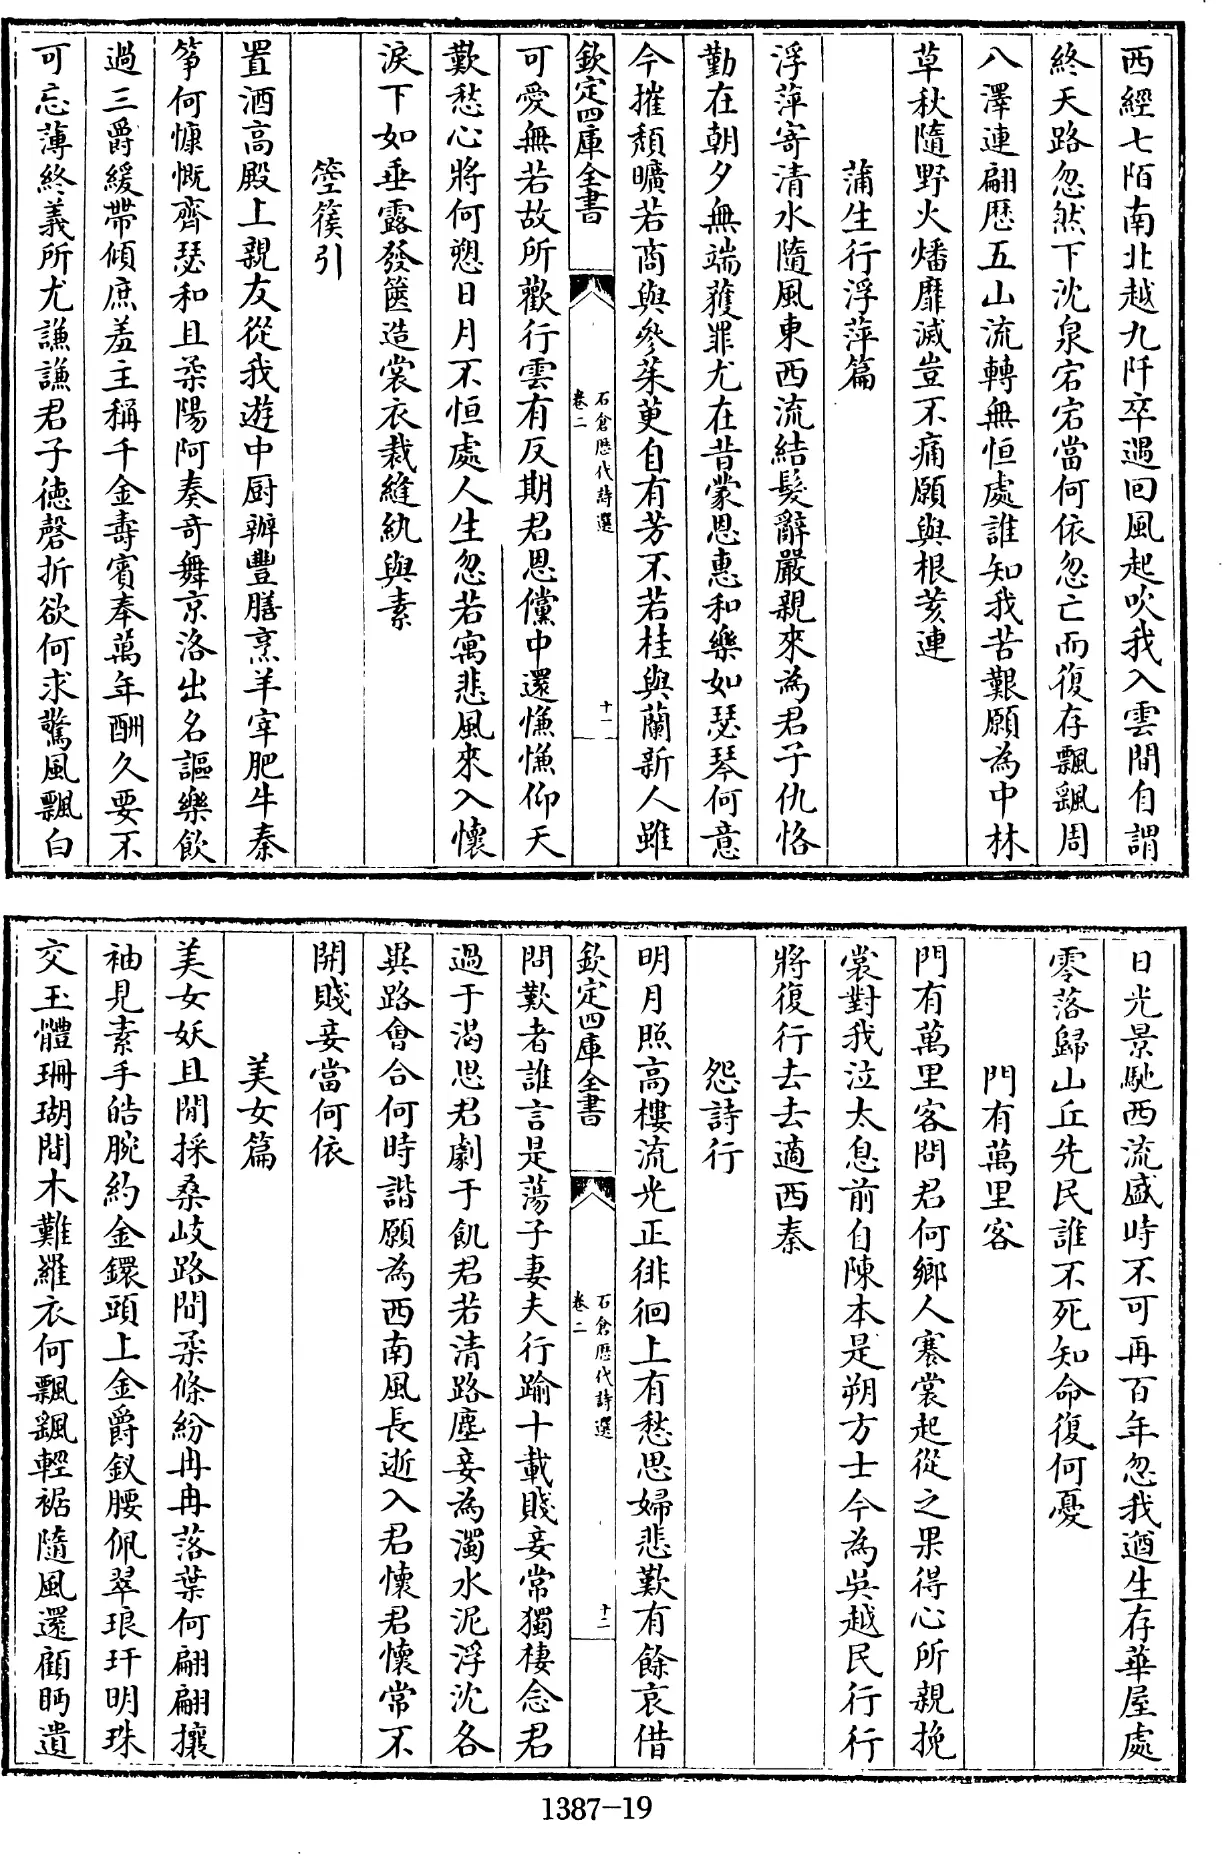 西經七陌南北越九阡卒遇回風起吹我入雲間自謂
終天路忽然下沈泉宕宕當何依忽亡而復存飄颻周
八澤連翩歴五山流轉無恒處誰知我苦艱願為中林
草秋隨野火燔靡滅豈不痛願與根荄連
蒲生行浮萍篇
浮萍寄清水隨風東西流結髮辭嚴親來為君子仇恪
勤在朝夕無端獲罪尤在昔蒙恩惠和樂如瑟琴何意
今摧頽曠若商與參茱萸自有芳不若桂與蘭新人雖
欽定四庫全書
石倉歴代詩選
卷二
十一
可愛無若故所歡行雲有反期君恩儻中還慊慊仰天
歎愁心將何愬日月不恒處人生忽若寓悲風來入懷
淚下如垂露發篋造裳衣裁縫紈與素
箜篌引
置酒高殿上親友從我遊中厨辦豐膳烹羊宰肥牛秦
筝何慷慨齊瑟和且柔陽阿奏奇舞京洛出名謳樂飲
過三爵緩帶傾庶羞主稱千金壽賓奉萬年酬久要不
可忘薄終義所尤謙謙君子徳磬折欲何求驚風飄白
日光景馳西流盛時不可再百年忽我遒生存華屋處
零落歸山丘先民誰不死知命復何憂
門有萬里客
門有萬里客問君何鄉人褰裳起從之果得心所親挽
裳對我泣太息前自陳本是朔方士今為吳越民行行
將復行去去適西秦
怨詩行
明月照高樓流光正徘徊上有愁思婦悲歎有餘哀借
欽定四庫全書
石倉歴代詩選
卷二
十二
問歎者誰言是蕩子妻夫行踰十載賤妾常獨棲念君
過于渴思君劇于飢君若清路塵妾為濁水泥浮沈各
異路會合何時諧願為西南風長逝入君懷君懷常不
開賤妾當何依
美女篇
美女妖且閒採桑岐路間柔條紛冉冉落葉何翩翩攘
袖見素手皓腕約金鐶頭上金爵釵腰佩翠琅玕明珠
交玉體珊瑚間木難羅衣何飄颻輕裾隨風還顧眄遺
1387-19